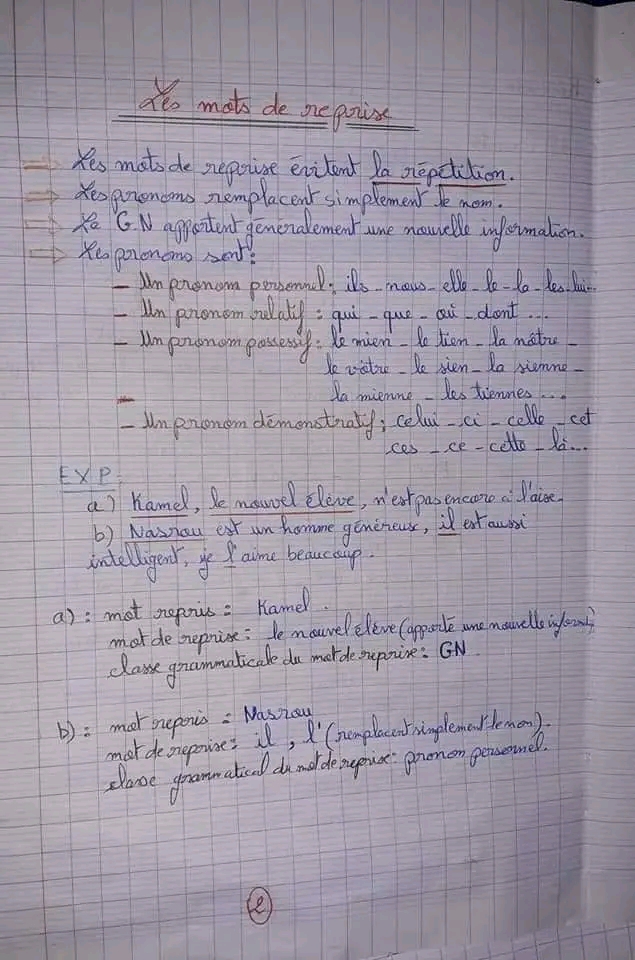 Les mots de reprise
Les mots de reprise évitent la répétition.
Les pronoms remplacent simplement le nom.
Le G.N apportent généralement une nouvelle information.
Les pronoms sont :
- Un pronom personnel : ils - nous - elle - le - la - les - lui...
- Un pronom relatif : qui - que - où - dont ...
- Un pronom possessif : le mien - le tien - la nôtre -
le vôtre - le sien - la sienne -
la mienne - les tiennes ...
- Un pronom démonstratif ; celui - ci - celle - cet
ces - ce - cette - là ...
EXP :
a) Kamel, le nouvel élève, n'est pas encore à l'aise.
b) Nasrou est un homme généreux, il est aussi
intelligent, je l'aime beaucoup.
a) : mot repris : Kamel.
mot de reprise : le nouvel élève (apporte une nouvelle inform)
classe grammaticale du mot de reprise : GN.
b) : mot repris : Nasrou
mot de reprise : il, l' (remplacent simplement le non).
classe grammatical du mot de reprise : pronon personnel.
2